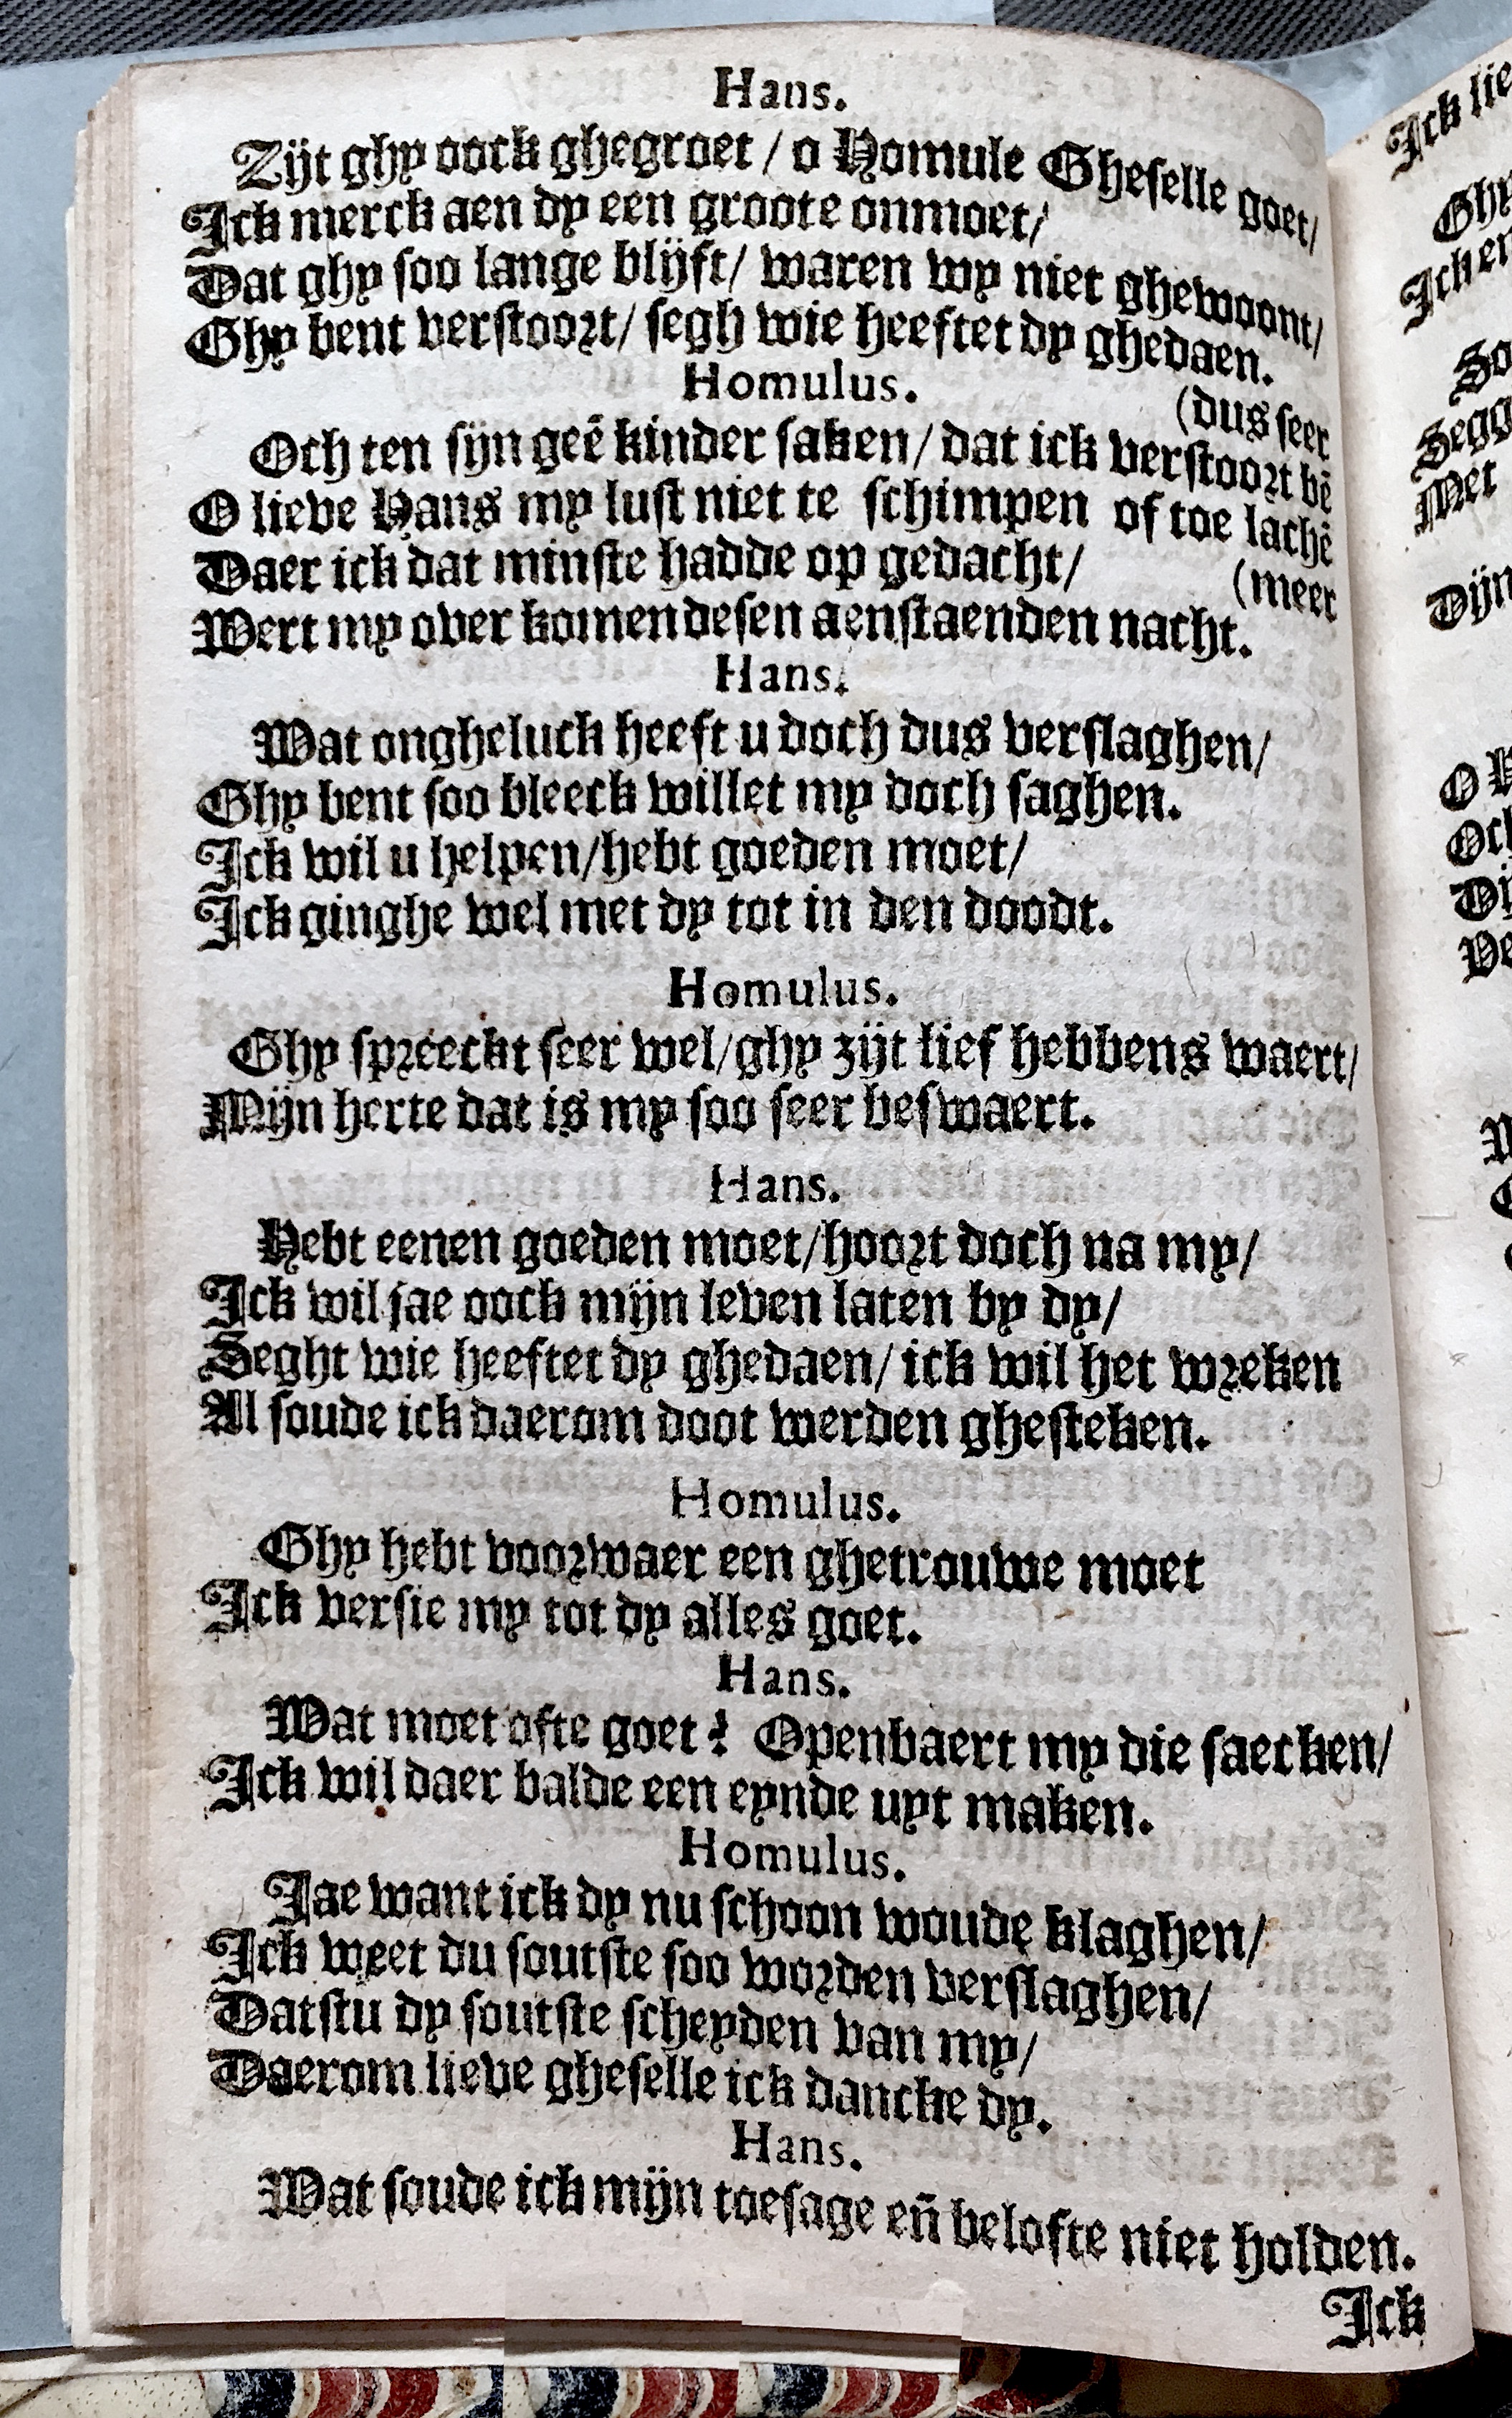 Hans.
Zijt ghy oock ghegroet / o Homule Gheselle goet/
Ick merck aen dy een groote onmoet/
Dat ghy soo lange blijft/ waren wy niet ghewoont/
Ghy bent verstoort/ segh wie heeftet dy ghedaen.
Homulus.
(dus seer
Och ten sijn geē kinder saken/ dat ick verstoort bē
O lieve Hans my lust niet te schimpen of toe lachē
Daer ick dat minste hadde op gedacht/
(meer
Wert my over komen desen aenstaenden nacht.
Hans.
Wat ongheluck heeft u doch dus verslaghen/
Ghy bent soo bleeck willet my doch saghen.
Ick wil u helpen/hebt goeden moet/
Ick ginghe wel met dy tot in den doodt.
Homulus.
Ghy spreeckt seer wel/ghy zijt lief hebbens waert/
Mijn herte dat is my soo seer beswaert.
Hans.
Hebt eenen goeden moet/hoort doch na my/
Ick wil jae oock mijn leven laten by dy/
Seght wie heeftet dy ghedaen/ ick wil het wreken
Al soude ick daerom doot werden ghesteken.
Homulus.
Ghy hebt voorwaer een ghetrouwe moet
Ick versie my tot dy alles goet.
Hans.
Wat moet ofte goet? Openbaert my die saecken/
Ick wil daer balde een eynde uyt maken.
Homulus.
Jae want ick dy nu schoon woude klaghen/
Ick weet du soutste soo worden verslaghen/
Datstu dy soutste scheyden van my/
Daerom lieve gheselle ick dancke dy.
Hans.
Wat soude ick mijn toesage eñ belofte niet holden.
Ick
Ick lie
Ghy
Ick en
So
Segg
Met
Dijn
O H
Och